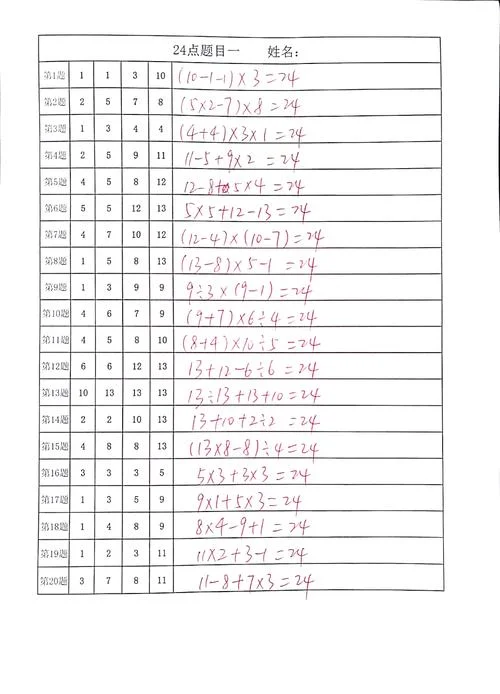 24点题目一 姓名:
第1题 1 1 3 10 (10-1-1)×3=24
第2题 2 5 7 8 (5×2-7)×8=24
第3题 1 3 4 4 (4+4)×3×1=24
第4题 2 5 9 11 11-5+9×2=24
第5题 4 5 8 12 12-8+5×4=24
第6题 5 5 12 13 5×5+12-13=24
第7题 4 7 10 12 (12-4)×(10-7)=24
第8题 1 5 8 13 (13-8)×5-1=24
第9题 1 3 9 9 9÷3×(9-1)=24
第10题 4 6 7 9 (9+7)×6÷4=24
第11题 4 5 8 10 (8+4)×10÷5=24
第12题 6 6 12 13 13+12-6÷6=24
第13题 10 13 13 13 13÷13+13+10=24
第14题 2 2 10 13 13+10+2÷2=24
第15题 4 8 8 13 (13×8-8)÷4=24
第16题 3 3 3 5 5×3+3×3=24
第17题 1 3 5 9 9×1+5×3=24
第18题 1 4 8 9 8×4-9+1=24
第19题 1 2 3 11 11×2+3-1=24
第20题 3 7 8 11 11-8+7×3=24